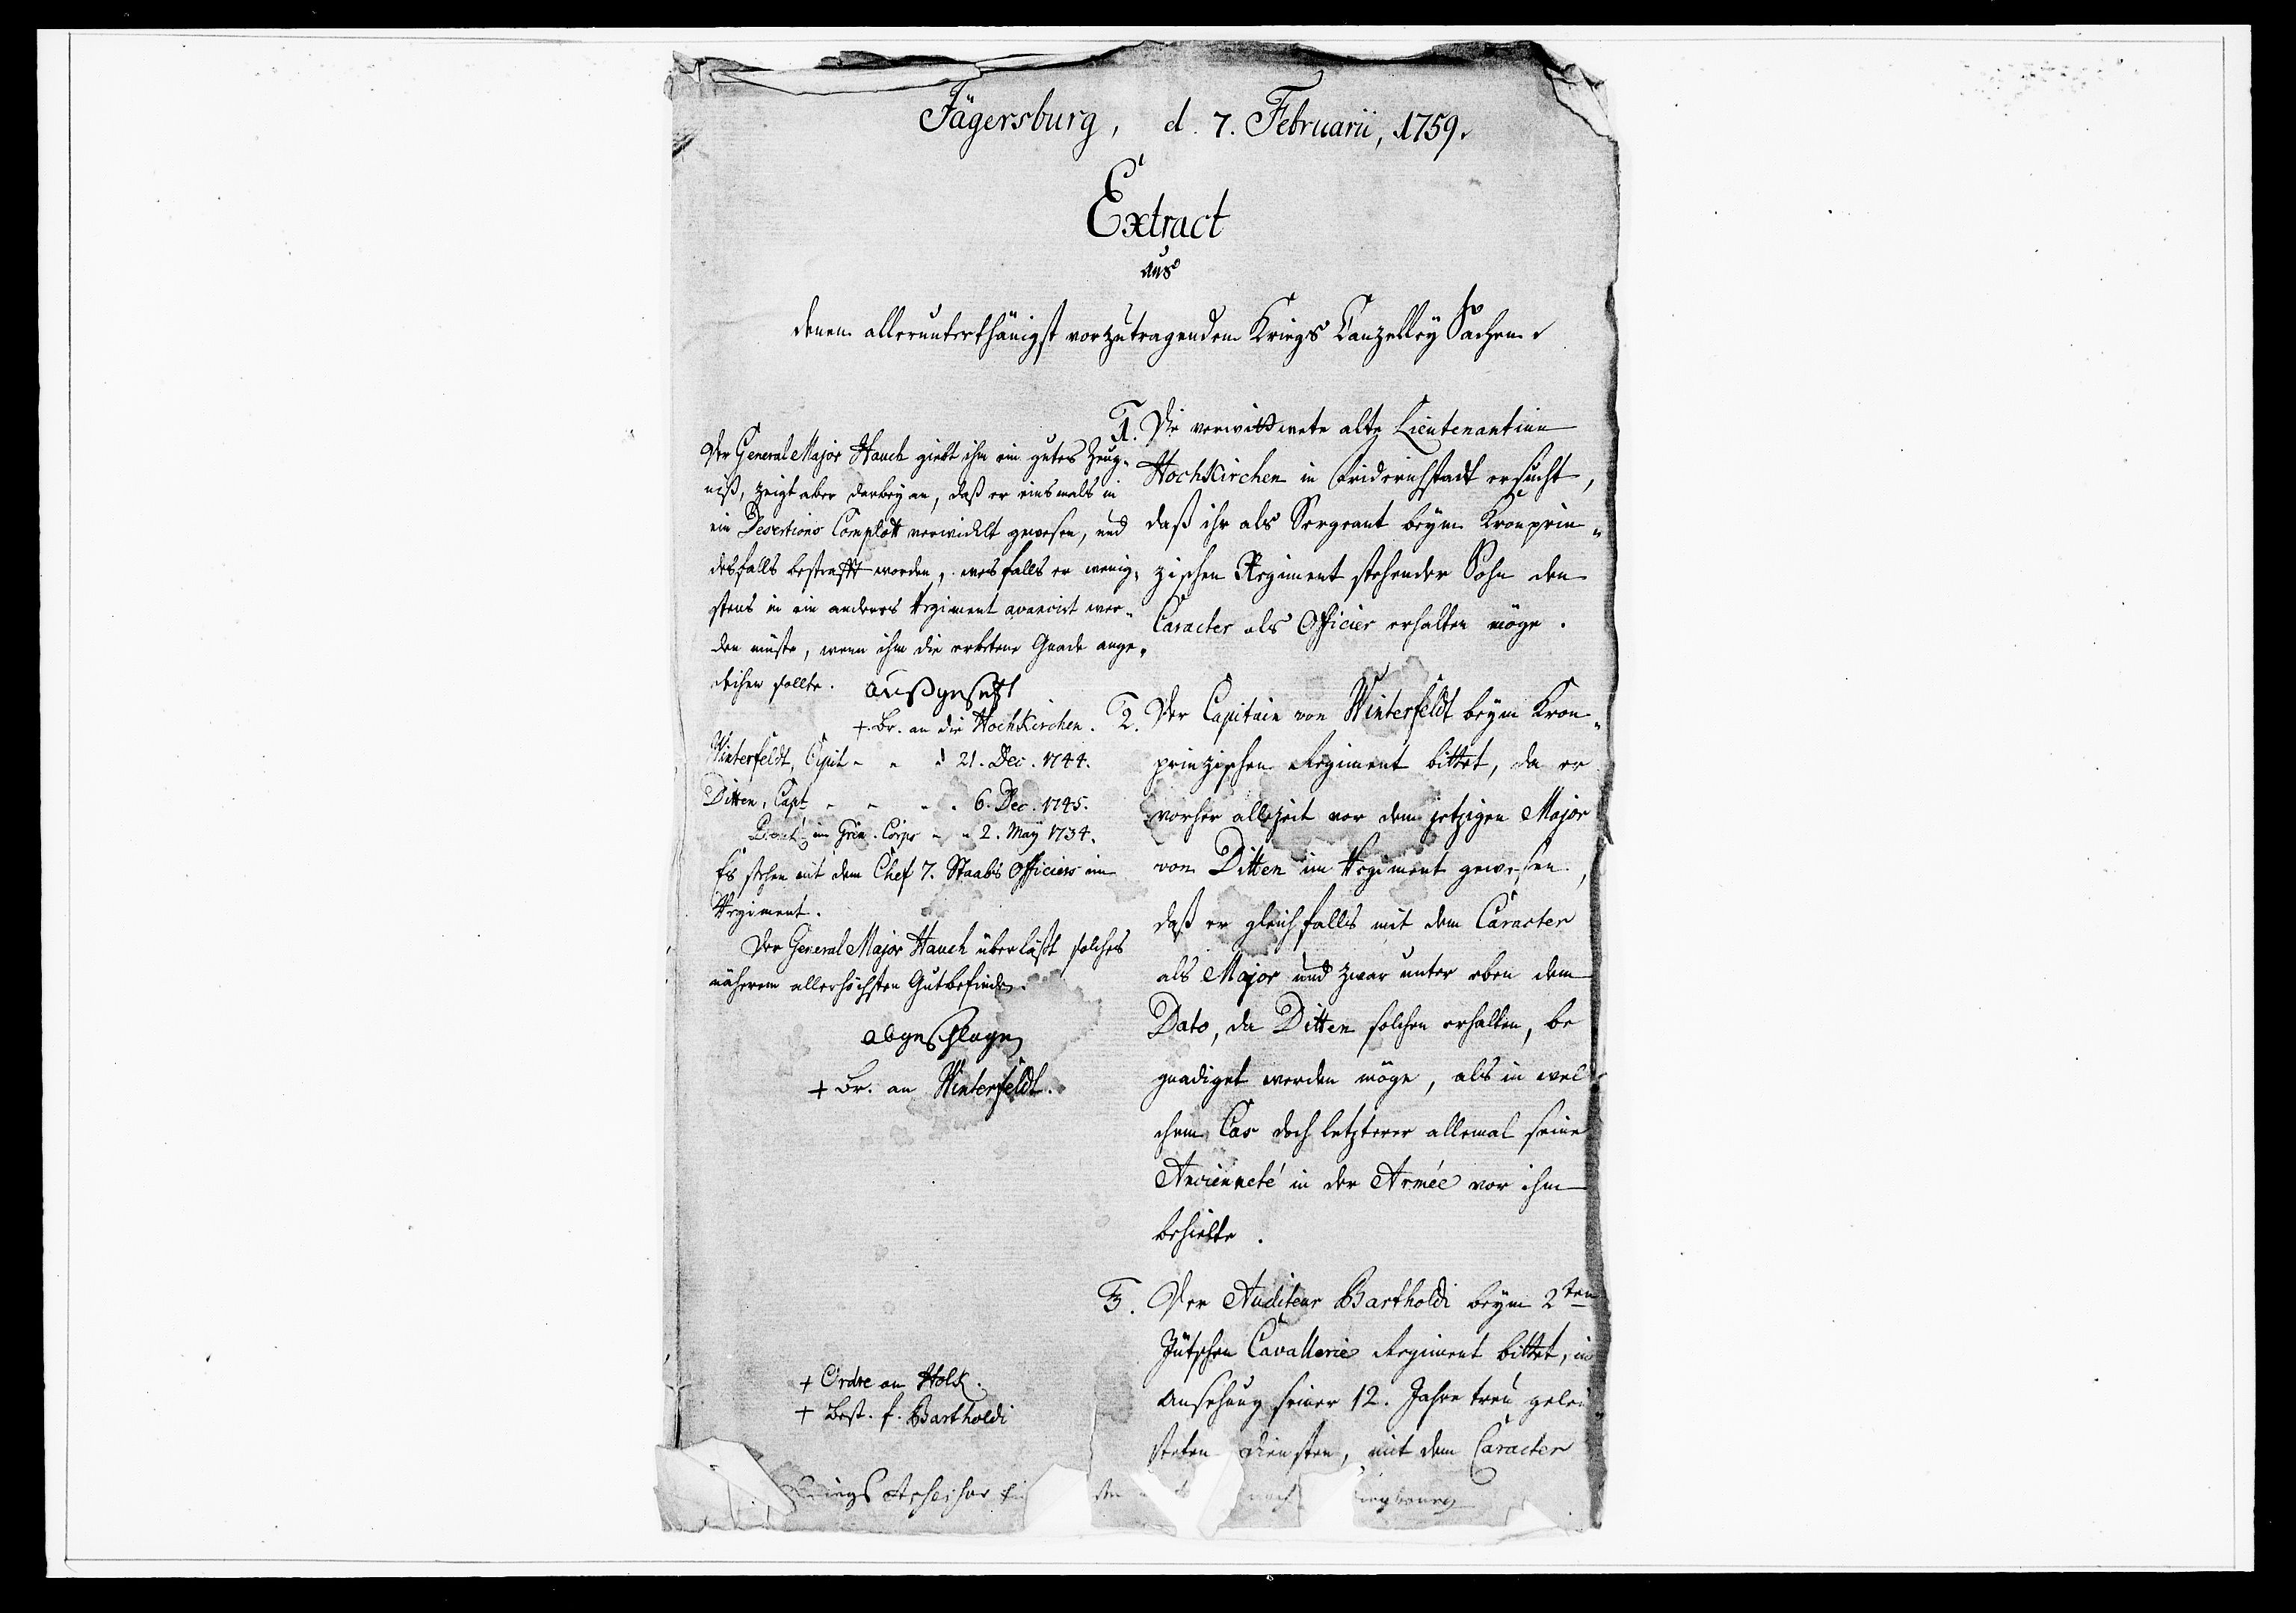 Jägersburg, d. 7. Februarii, 1759.
Extract
aus
denen allerunterthänigst vorzutragenden Kriegs Canzelley Sachen.
Der General Major Hauch giebt ihm ein gutes Zeug„
niß, zeigt aber darbey an, daß er einsmals in
ein Desertions Complott verwickelt gewesen, und
desfalls bestrafft worden, wesfalls er wenig„
stens in ein anderes Regiment avancirt wer„
den müste, wenn ihm die erbetene Gnade ange„
deihen sollte. außgesetzt
+ Br. an die Hochkirchen.
Winterfeldt, Capit - - d 21. Dec. 1744.
Ditten, Capt - - - - 6. Dec. 1745.
im Gren. Corps - - 2. May 1734.
Es stehen mit dem Chef 7. Staabs Officiers im
Regiment.
Der General Major Hauch überläßt solches
näherem allerhöchsten Gutbefinden.
abgeschlagen
+ Br. an Winterfeldt.
+ Ordre an Holk.
+ Best. f. Bartholdi
1. Die verwittwete alte Lieutenantinn
Hochkirchen in Friderichstadt ersucht,
daß ihr als Sergeant beym Kronprin„
zischen Regiment stehender Sohn den
Caracter als Officier erhalten möge.
2. Der Capitain von Winterfeldt beym Kron„
prinzischen Regiment bittet, da er
vorher allezeit vor dem jetzigen Major
von Ditten im Regiment gewesen,
daß er gleichfalls mit dem Caracter
als Major und zwar unter eben dem
Dato, da Ditten solchen erhalten, be
gnadiget werden möge, als in wel
chem Cas doch letzterer allemal seine
Ancienneté in der Armée vor ihm
behielte.
3. Der Auditeur Bartholdi beym 2ten
Jütschen Cavallerie Regiment bittet, in
Ansehung seiner 12. Jahre treu gelei„
steten Diensten, mit dem Caracter
Kriegs Assessor